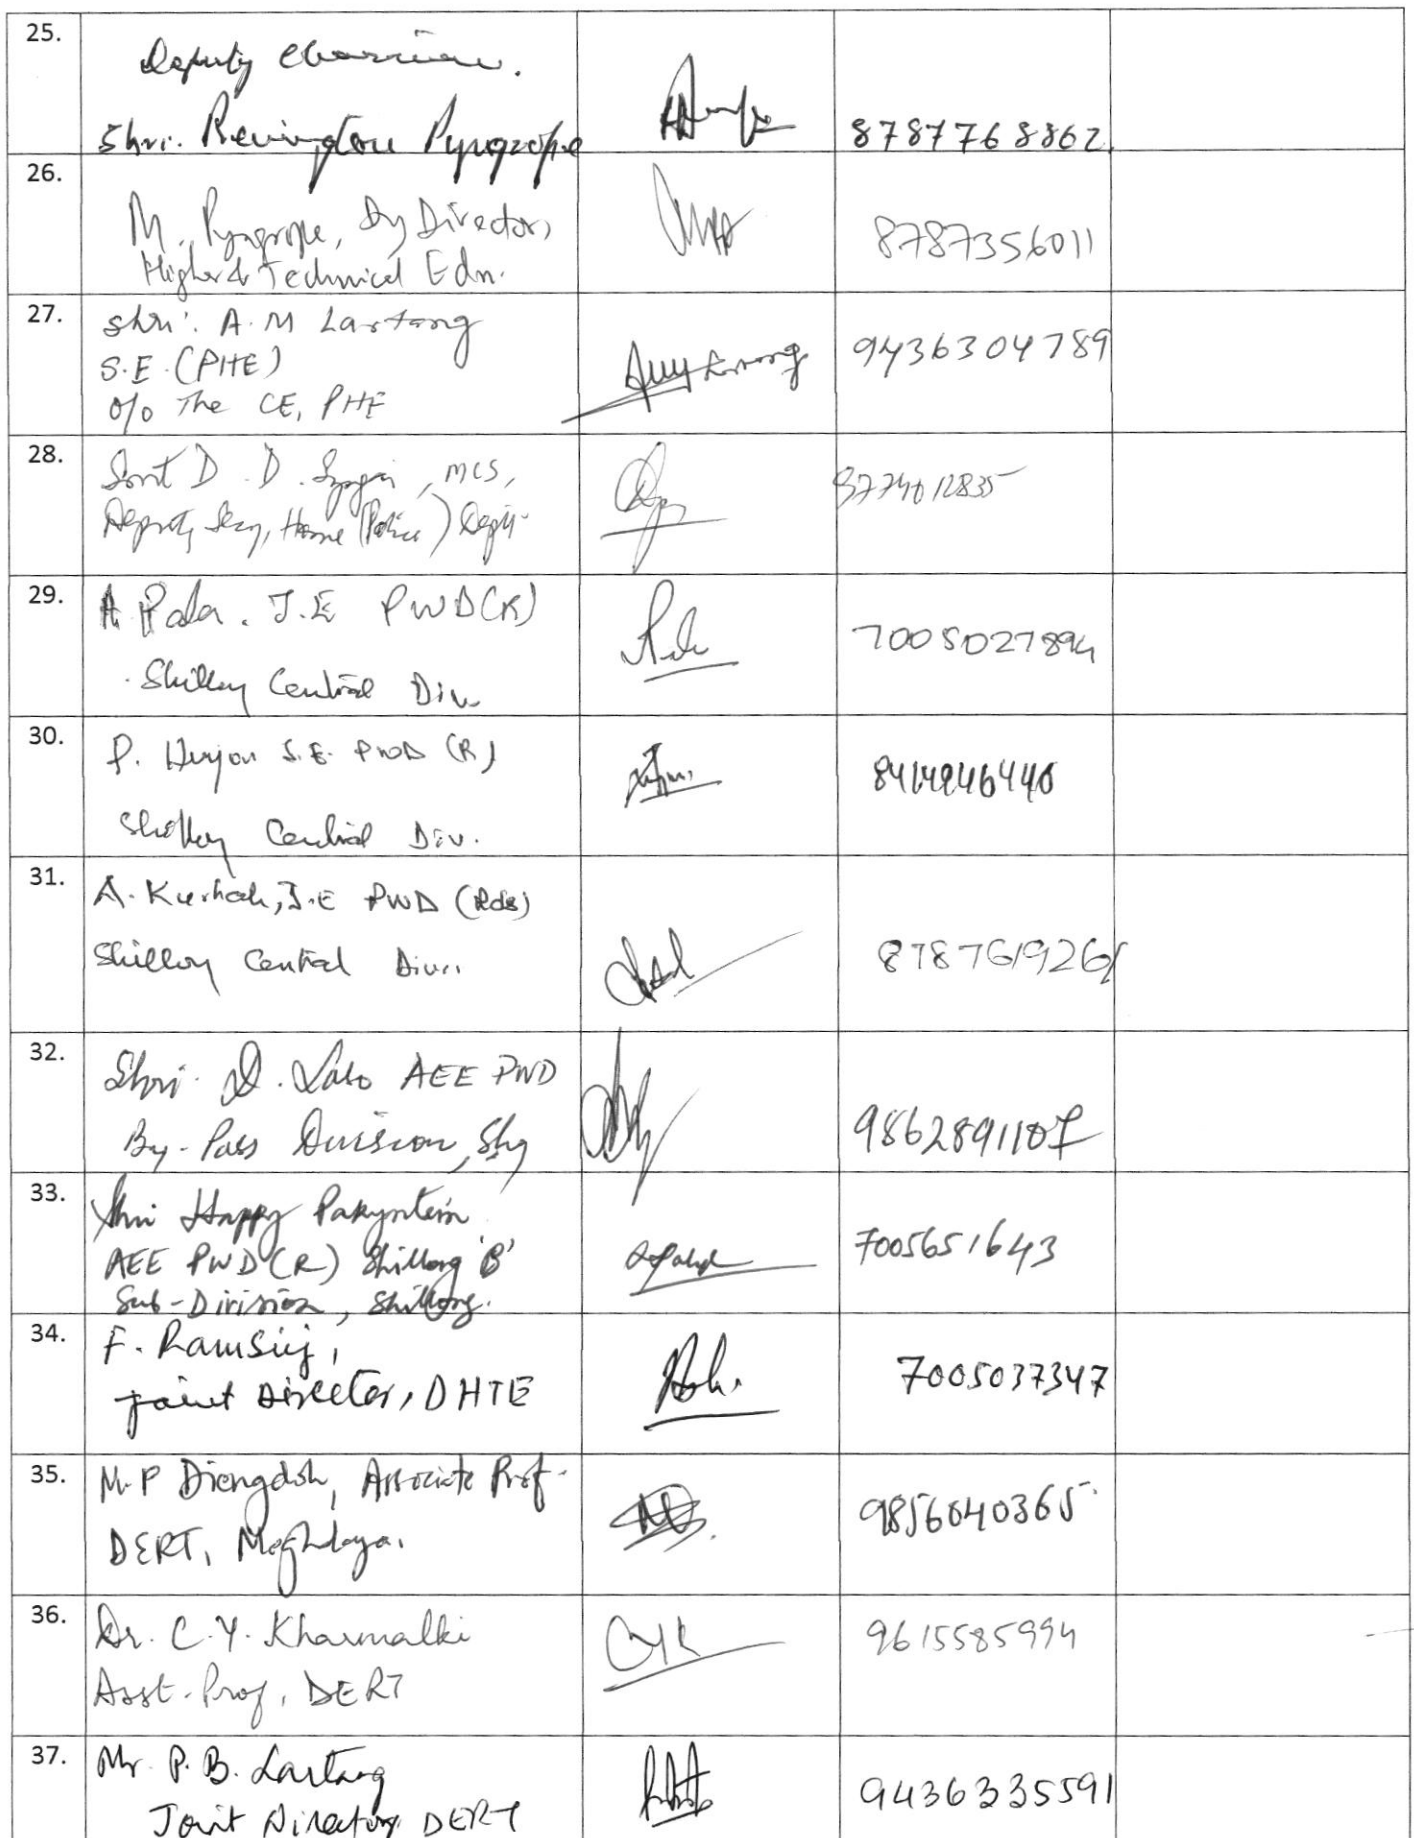 25.
Deputy Chairman.
Shri. Revington Pyngrope
8787768862.
26.
M. Pyngrope, Dy Director,
Higher & Technical Edn.
8787356011
27.
Shri. A.M Lartang
S.E. (PHE)
O/o The CE, PHE
9436304789
28.
Smt D. D. , MCS,
Deputy Secy, Home (Police) Deptt.
29.
A. Pala. J.E PWD(R)
Shillong Central Div.
7005027894
30.
P. S.E. PWD (R)
Shillong Central Div.
31.
A. J.E PWD (Rds)
Shillong Central Divn.
8787619261
32.
Shri. D. Lato AEE PWD
By-Pass Division, Shg
9862891107
33.
Shri Happy Pakyntein
AEE PWD (R) Shillong 'B'
Sub-Division, Shillong.
7005651643
34.
F. Ramsiej,
Joint Director, DHTE
7005037347
35.
M.P Diengdoh, Associate Prof.
DERT, Meghalaya.
9856040365
36.
Dr. C.Y. Kharmalki
Asst. Prof, DERT
CYK
9615585994
37.
Mr. P.B. Lartang
Joint Director, DERT
9436335591